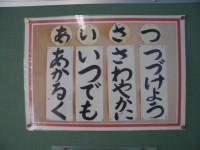 あいさつ
あかるく
いつでも
さわやかに
つづけよう